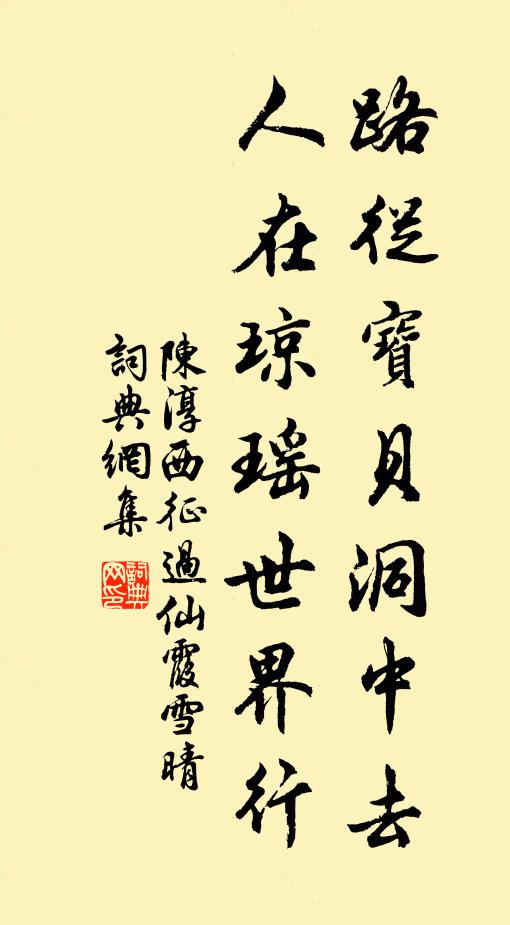 路從寶貝洞中去
人在琼瑶世界行
陳淳西征過仙霞雪晴
詞典網集
詞典网印